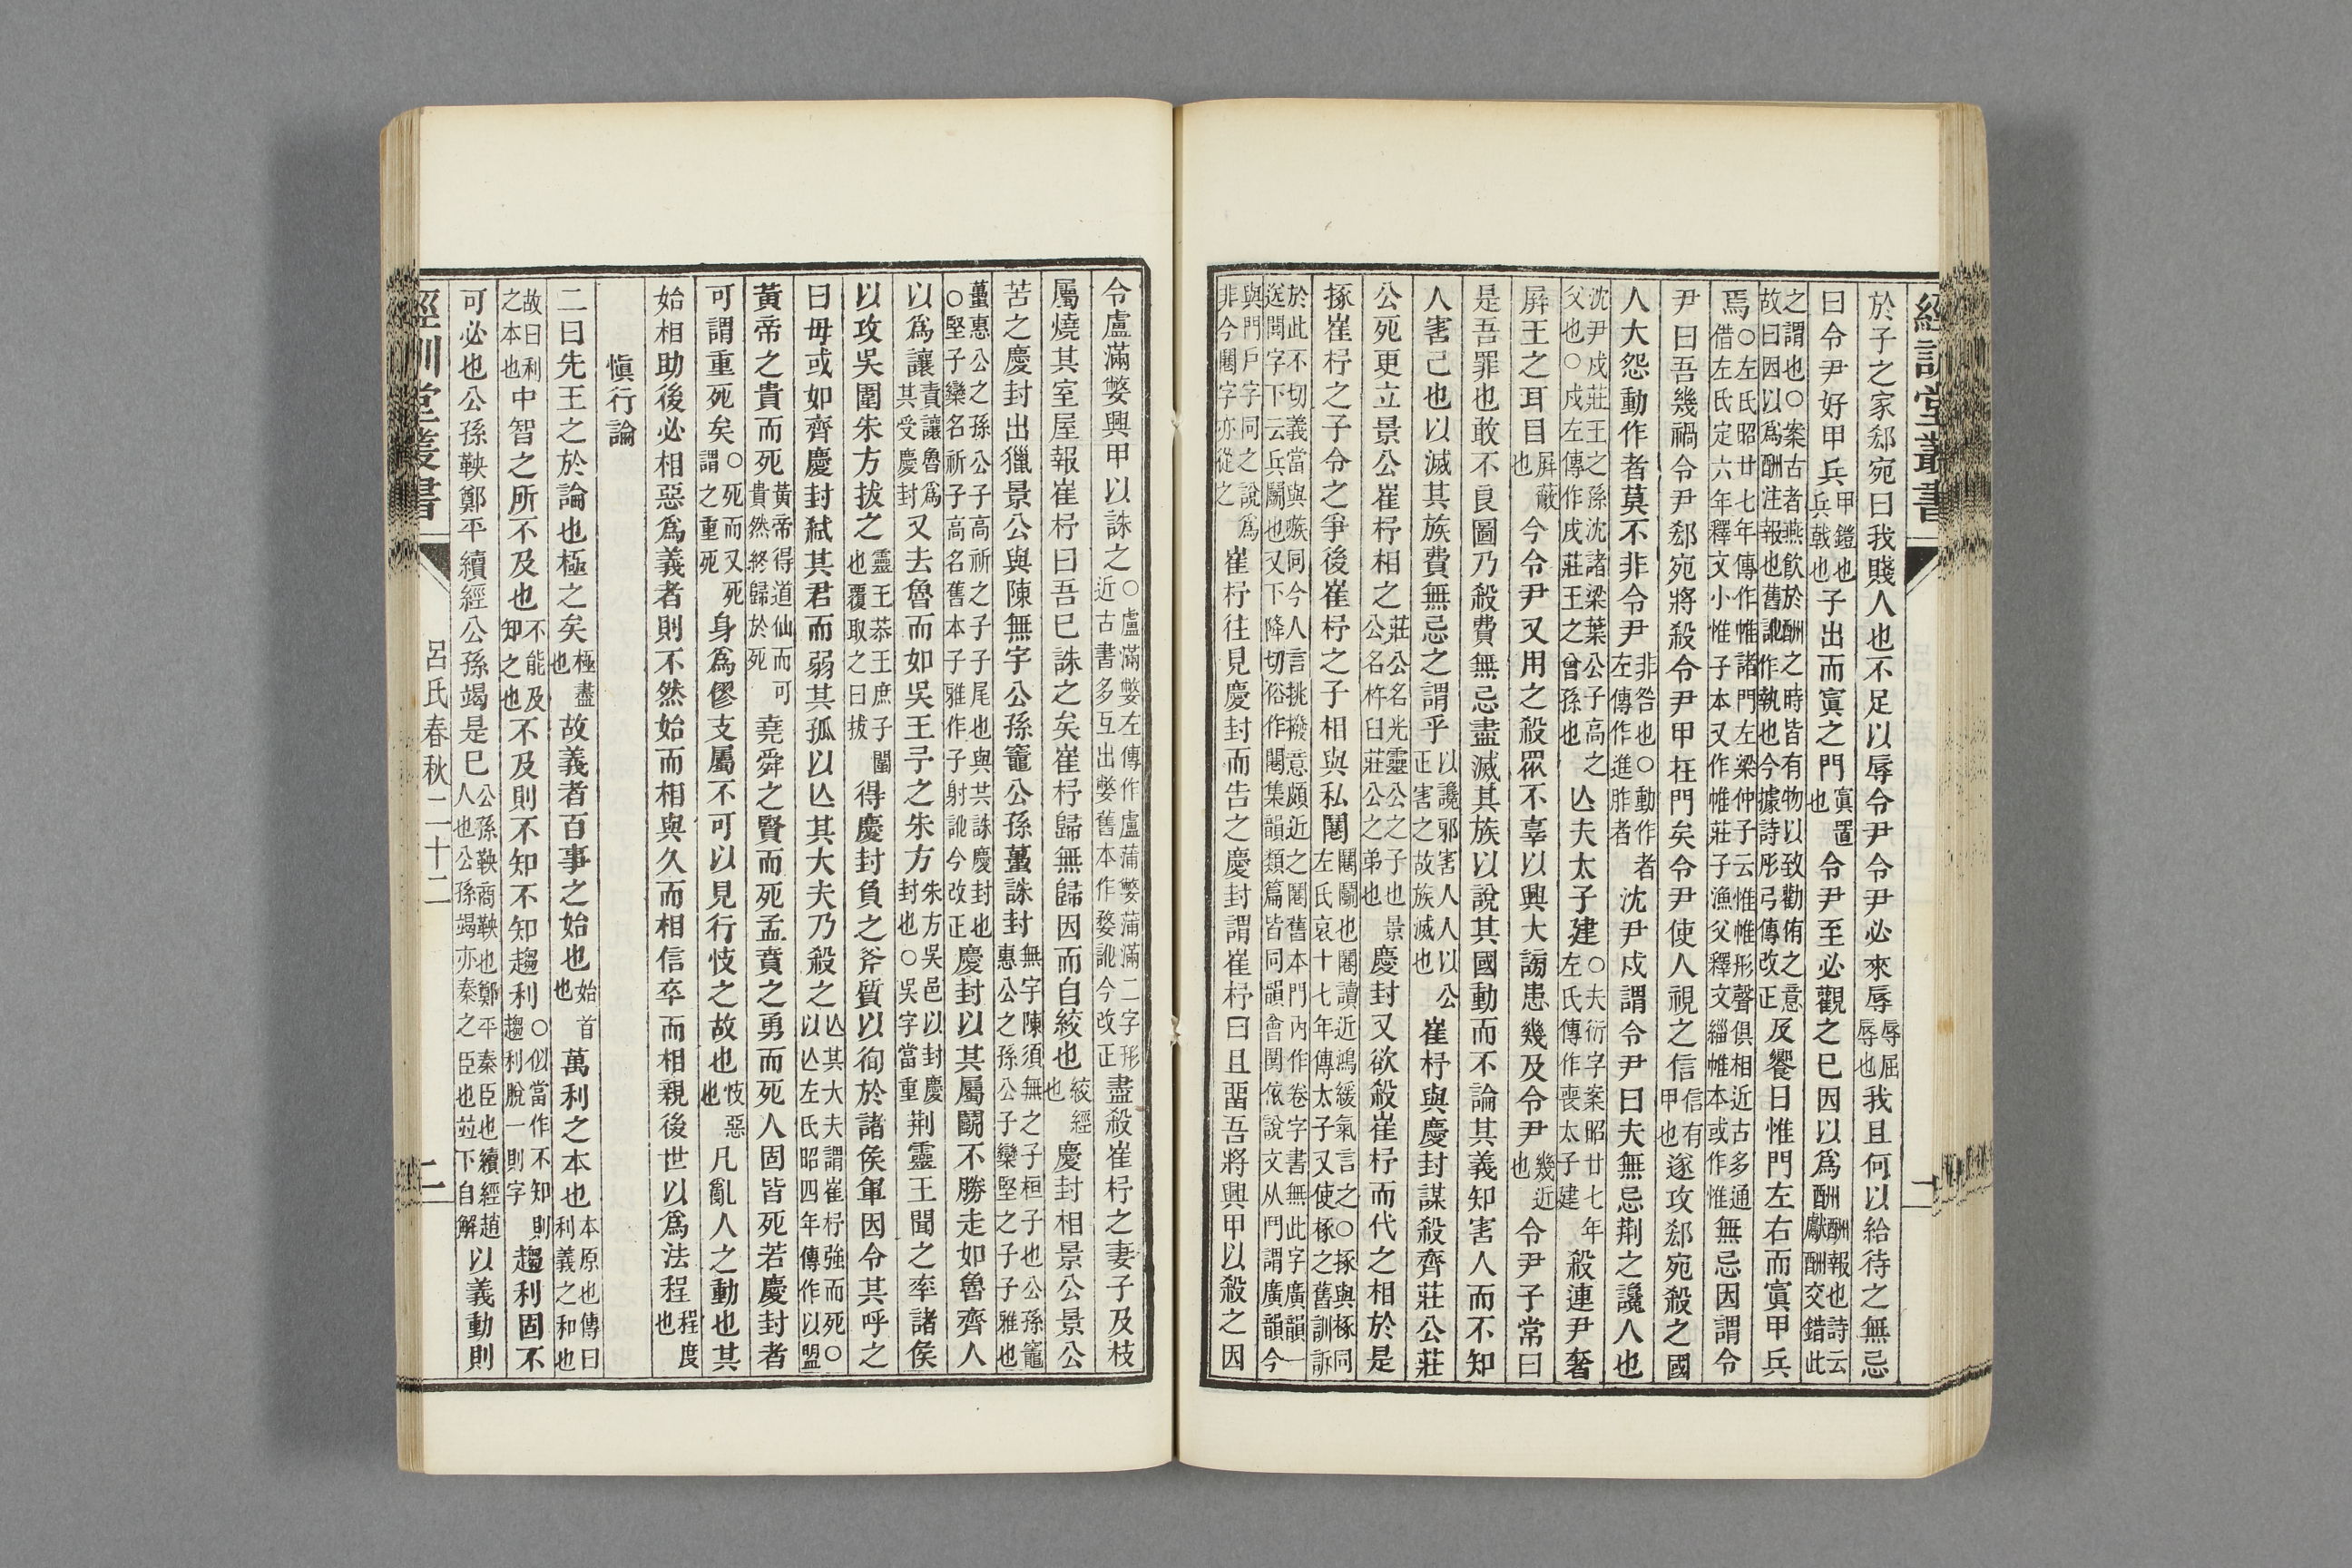 經訓堂叢書
二
於子之家郄宛曰我賤人也不足以辱令尹令尹必來辱辱屈辱也我且何以給待之無忌
曰令尹好甲兵甲鎧也兵戟也子出而寘之門寘置也令尹至必觀之巳因以爲酬酬報也詩云獻酬交錯此
之謂也○案古者燕飲於酬之時皆有物以致勸侑之意故曰因以爲酬注報也舊訛作執也今據詩彤弓傳改正及饗日惟門左右而寘甲兵
焉○左氏昭廿七年傳作帷諸門左梁仲子云惟帷形聲俱相近古多通借左氏定六年釋文小惟子本又作帷莊子漁父釋文緇帷本或作惟無忌因謂令
尹曰吾幾禍令尹郄宛將殺令尹甲在門矣令尹使人視之信信有甲也遂攻郄宛殺之國
人大怨動作者莫不非令尹非咎也○動作者左傳作進胙者沈尹戍謂令尹曰夫無忌荆之讒人也
沈尹戍莊王之孫沈諸梁葉公子高之父也○戍左傳作戌莊王之曾孫也亾夫太子建○夫衍字案昭廿七年左氏傳作喪太子建殺連尹奢
屏王之耳目屏蔽也今令尹又用之殺眾不辜以興大謗患幾及令尹幾近也令尹子常曰
是吾罪也敢不良圖乃殺費無忌盡滅其族以說其國動而不論其義知害人而不知
人害己也以滅其族費無忌之謂乎以讒邪害人人以公正害之故族滅也崔杼與慶封謀殺齊莊公莊
公死更立景公崔杼相之莊公名光靈公之子也景公名杵臼莊公之弟也慶封又欲殺崔杼而代之相於是
㧻崔杼之子令之爭後崔杼之子相與私鬨鬨鬭也鬨讀近鴻緩氣言之○㧻與椓同左氏哀十七年傳太子又使椓之舊訓訴
於此不切義當與嗾同今人言挑撥意頗近之鬨舊本門內作卷字書無此字廣韻一送鬨字下云兵鬭也又下降切俗作閧集韻類篇皆同韻會閧依說文从鬥謂廣韻今
與門戶字同之說爲非今鬨字亦從之崔杼往見慶封而告之慶封謂崔杼曰且畱吾將興甲以殺之因
令盧滿嫳興甲以誅之○盧滿嫳左傳作盧蒲嫳蒲滿二字形近古書多互出嫳舊本作婺訛今改正盡殺崔杼之妻子及枝
屬燒其室屋報崔杼曰吾巳誅之矣崔杼歸無歸因而自絞也絞經也慶封相景公景公
苦之慶封出獵景公與陳無宇公孫竈公孫蠆誅封無宇陳須無之子桓子也公孫竈惠公之孫公子欒堅之子子雅也
蠆惠公之孫公子高祈之子子尾也與其誅慶封也○堅子欒名祈子高名舊本子雅作子射訛今改正慶封以其屬鬭不勝走如魯齊人
以爲讓責讓魯爲其受慶封又去魯而如吳王予之朱方朱方吳邑以封慶封也○吳字當重荆靈王聞之率諸侯
以攻吳圍朱方拔之靈王恭王庶子圍也覆取之曰拔得慶封負之斧質以徇於諸侯軍因令其呼之
曰毋或如齊慶封弒其君而弱其孤以亾其大夫乃殺之亾其大夫謂崔杼強而死○以亾左氏昭四年傳作以盟
黃帝之貴而死黃帝得道仙而可貴然終歸於死堯舜之賢而死孟賁之勇而死人固皆死若慶封者
可謂重死矣○死而又死謂之重死身爲僇支屬不可以見行忮之故也忮惡也凡亂人之動也其
始相助後必相惡爲義者則不然始而相與久而相信卒而相親後世以爲法程程度也
愼行論
二曰先王之於論也極之矣極盡也故義者百事之始也始首也萬利之本也本原也傳曰利義之和也
故曰利之本也中智之所不及也不能及知之也不及則不知不知趨利○似當作不知則趨利脫一則字趨利固不
可必也公孫鞅鄭平續經公孫竭是巳公孫鞅商鞅也鄭平秦臣也續經趙人也公孫竭亦秦之臣也竝下自解以義動則
經訓堂叢書
呂氏春秋二十二
二